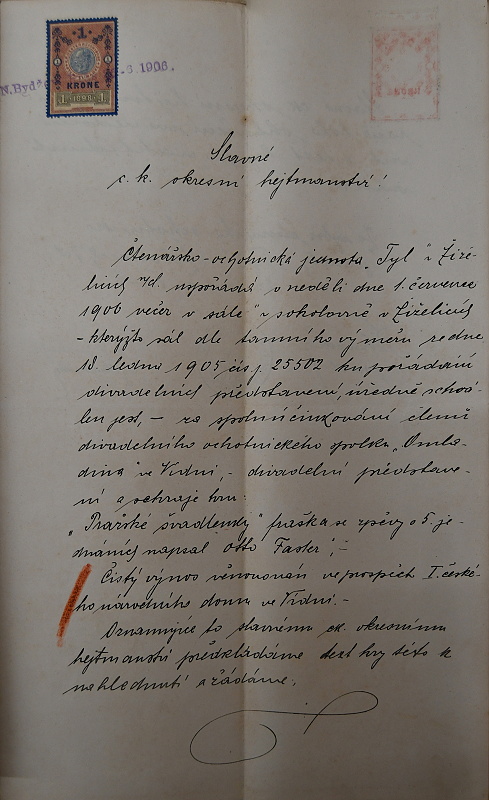 1
KRONE
1898
N.Bydž 6.1906.
Slavné
c. k. okresní hejtmanství!
Čtenářsko-ochotnická jednota „Tyl" v Žíže-
licích n/C. uspořádá v neděli dne 1. července
1906 večer v sále v sokolovně v Žíželicích
- kterýžto sál dle tamního výměru ze dne
18. ledna 1905 čís. j. 25502 ku pořádání
divadelních představení, úředně schvá-
len jest, - za spoluúčinkování členů
divadelního ochotnického spolku „Omla-
dina" ve Vídni, - divadelní představe-
ní a sehraje hru:
„Pražské švadlenky" fraška se zpěvy o 5. je-
dnáních napsal Otto Faster, -
Čistý výnos věnován ve prospěch I. české-
ho národního domu ve Vídni. -
Oznamujíce to slavnému ck. okresnímu
hejtmanství předkládáme text hry této k
nahlédnutí a žádáme,